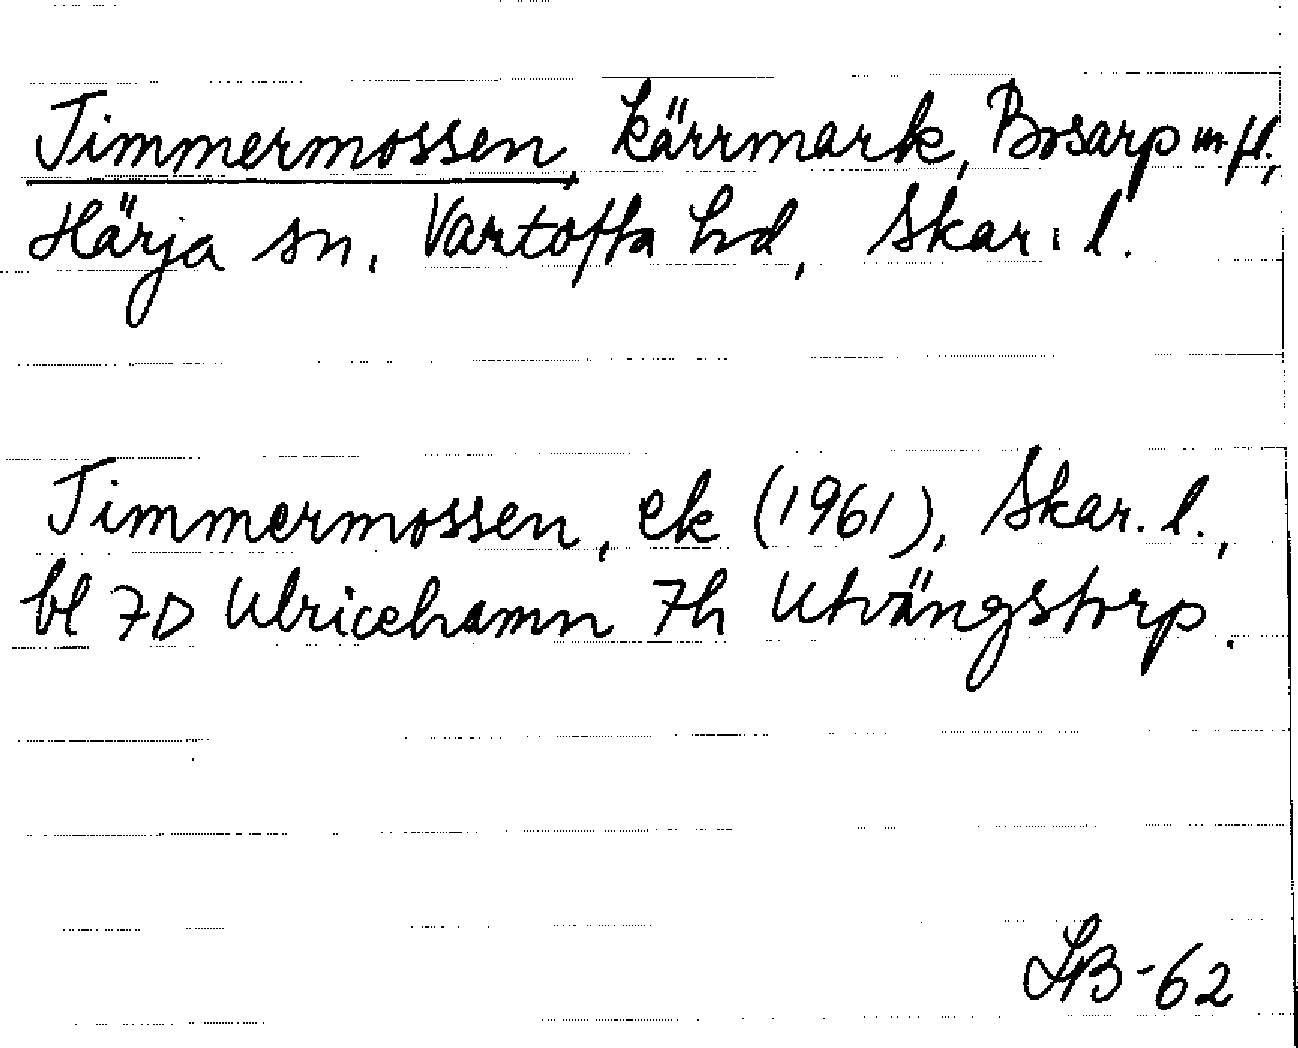 Timmermossen, kärrmark, Bosarp m fl.,
Härja sn, Vartofta hd, Skar. l.
Timmermossen, ek (1961), Skar. l.,
bl 7D Ulricehamn 7h Utvängstorp.
SB-62